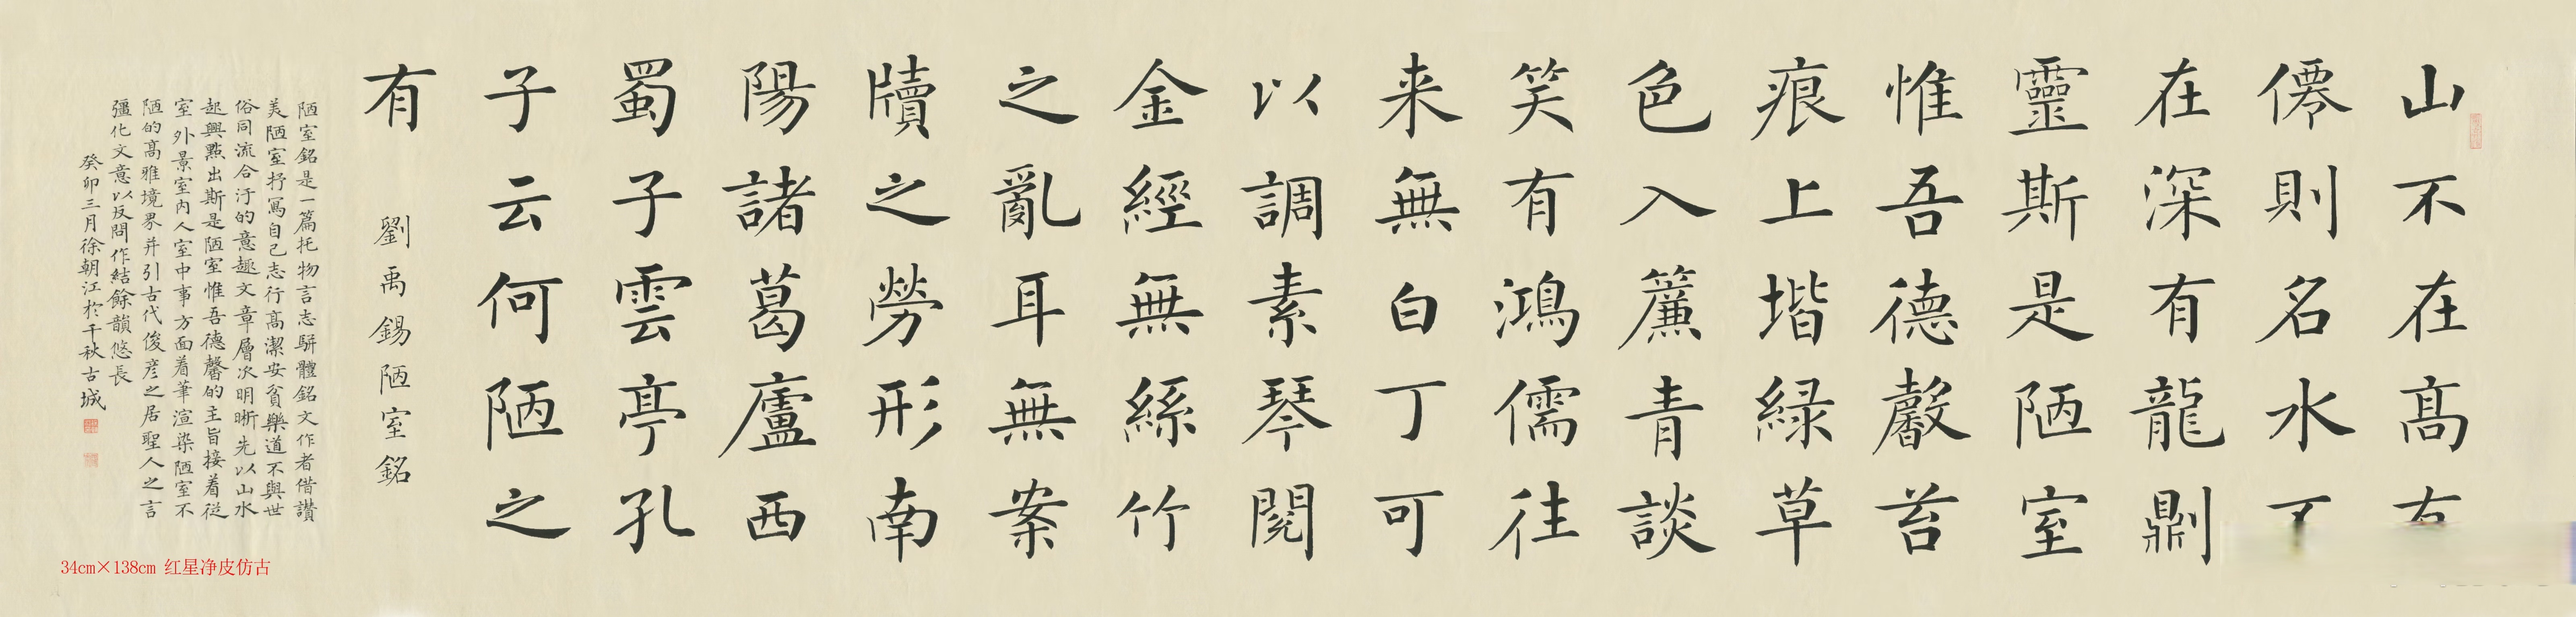 山不在高
僊則名水
在深有龍則
靈斯是陋室
惟吾德馨苔
痕上堦緑草
色入簾青談
笑有鴻儒往
来無白丁可
以調素琴閲
金經無絲竹
之亂耳無案
牘之勞形南
陽諸葛廬西
蜀子雲亭孔
子云何陋之
有
劉禹錫陋室銘
陋室銘是一篇托物言志駢體銘文作者借讚
美陋室抒寫自己志行高潔安貧樂道不與世
俗同流合汙的意趣文章層次明晰先以山水
起興點出斯是陋室惟吾德馨的主旨接着從
室外景室内人室中事方面着筆渲染陋室不
陋的高雅境界并引古代俊彦之居聖人之言
彊化文意以反問作結餘韻悠長
癸卯三月徐朝江於千秋古城
34cm×138cm 红星净皮仿古